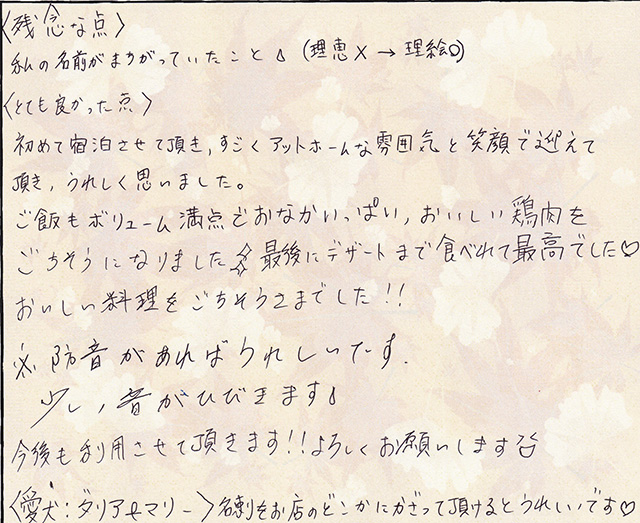 〈残念な点〉
私の名前がまちがっていたこと💧 (理恵×→理絵○)
〈とても良かった点〉
初めて宿泊させて頂き，すごくアットホームな雰囲気と笑顔で迎えて
頂き，うれしく思いました。
ご飯もボリューム満点でおなかいっぱい，おいしい鶏肉を
ごちそうになりました 最後にデザートまで食べれて最高でした♡
おいしい料理をごちそうさまでした!!
※防音があればうれしいです.
少し，音がひびきます💧
今後も利用させて頂きます!!よろしくお願いします
〈愛犬：ダリア マリー〉名刺をお店のどこかにかざって頂けるとうれしいです♡